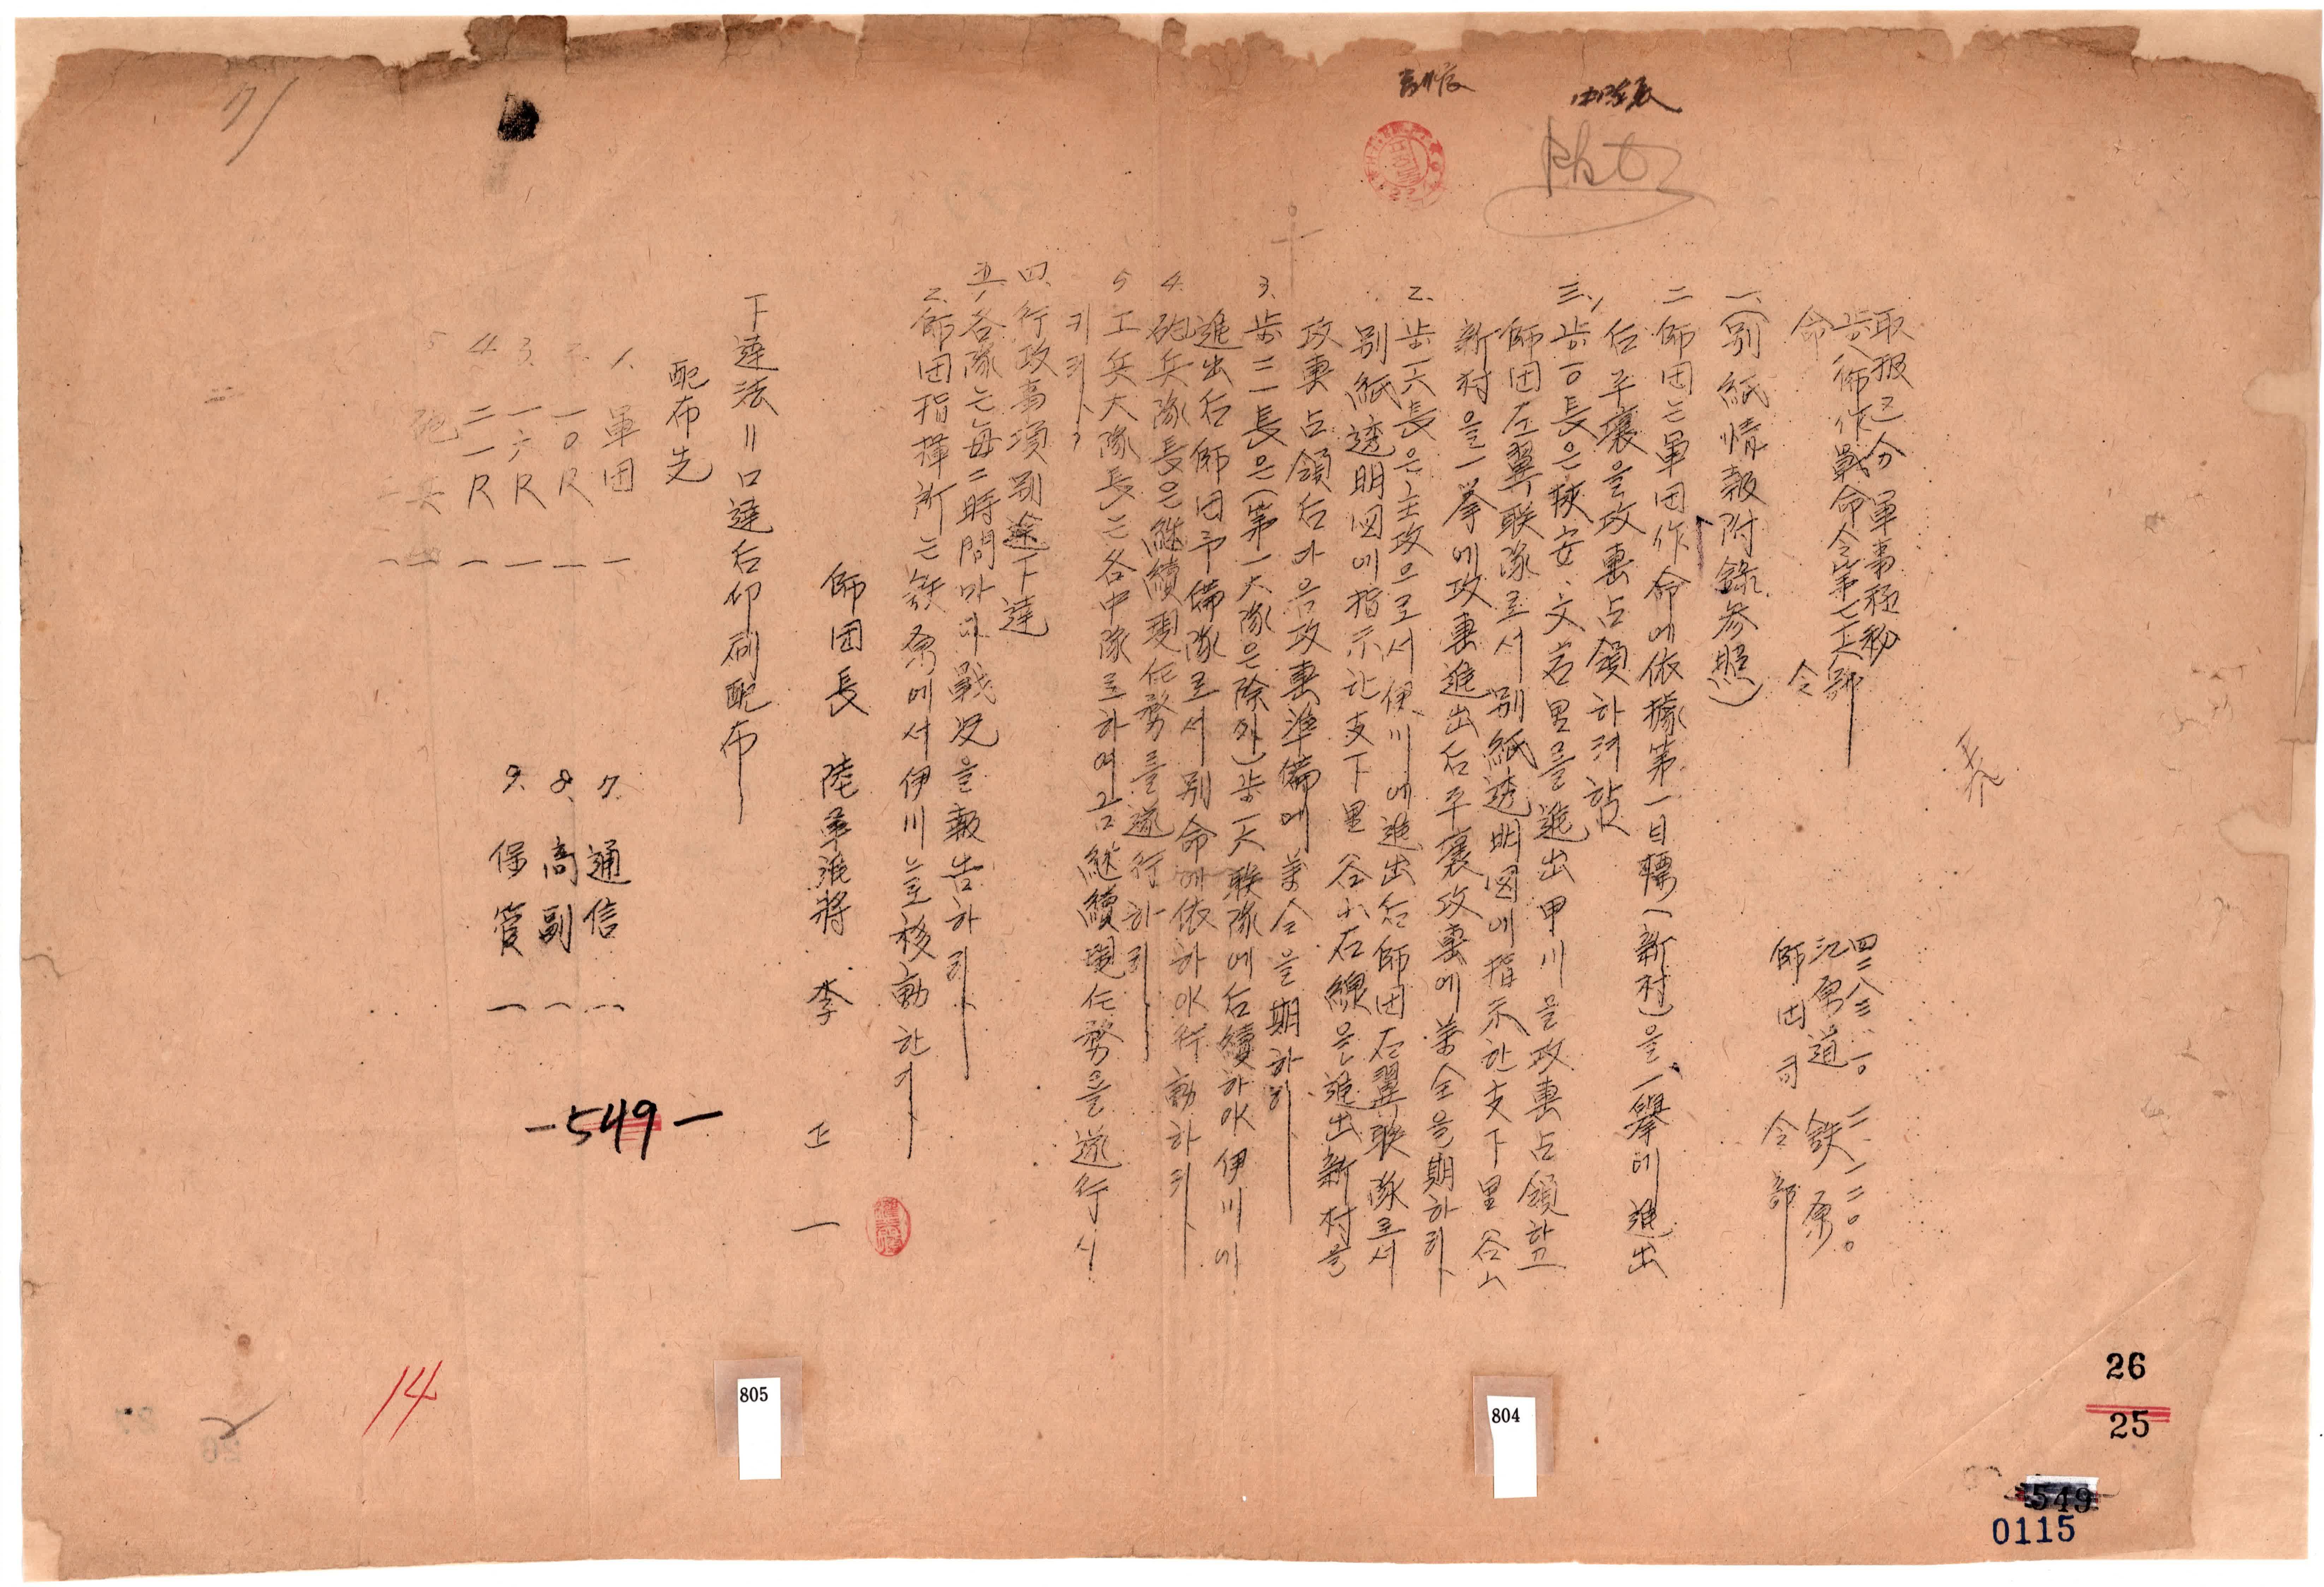 取扱区分 軍事極秘
步八師作戰命令第七五號
命 令
四二八三.一〇.一二.一二〇〇
江原道 鉄原
師団司令部
一、(別紙情報附錄參照)
二 師団는 軍団作命에 依據 第一目標(新村)을 一擧에 進出
后 平壤을 攻擊 占領하려 함
三、1 步一〇長은 挾安、文岩里를 進出 甲川을 攻擊 占領하고
師団左翼联隊로서 別紙透明図에 指示한 支下里 谷山
新村을 一挙에 攻擊進出后 平壤攻擊에 萬全을 期하라
2、步一六長은 主攻으로서 伊川에 進出后 師団右翼联隊로서
別紙透明図에 指示한 支下里 谷山 右線을 進出 新村을
攻擊占領后 다음 攻擊準備에 萬全을 期하라
3、步二一長은(第一大隊은 除外) 步一六联隊에 后續하야 伊川에
進出后 師団予備隊로서 別命에 依하야 行動하라
4. 砲兵隊長은 継續 現任務를 遂行하라
5 工兵大隊長은 各中隊로 하여금 継續 現任務을 遂行시
키라
四、行政事項 別途下達
五、1 各隊는 每二時間마다 戰況을 報告하라
2、師団指揮所는 鉄原에서 伊川으로 移動한다
師団長 陸軍准將 李 正 一
下達法=口達后印刷配布
配布先
1、軍団 一
2、一〇R 一
3、一六R 一
4、二一R 一
5 砲兵 一
7. 通信 一
8、高副 一
9、保管 一
-549-
14
805
804
26
25
549
0115